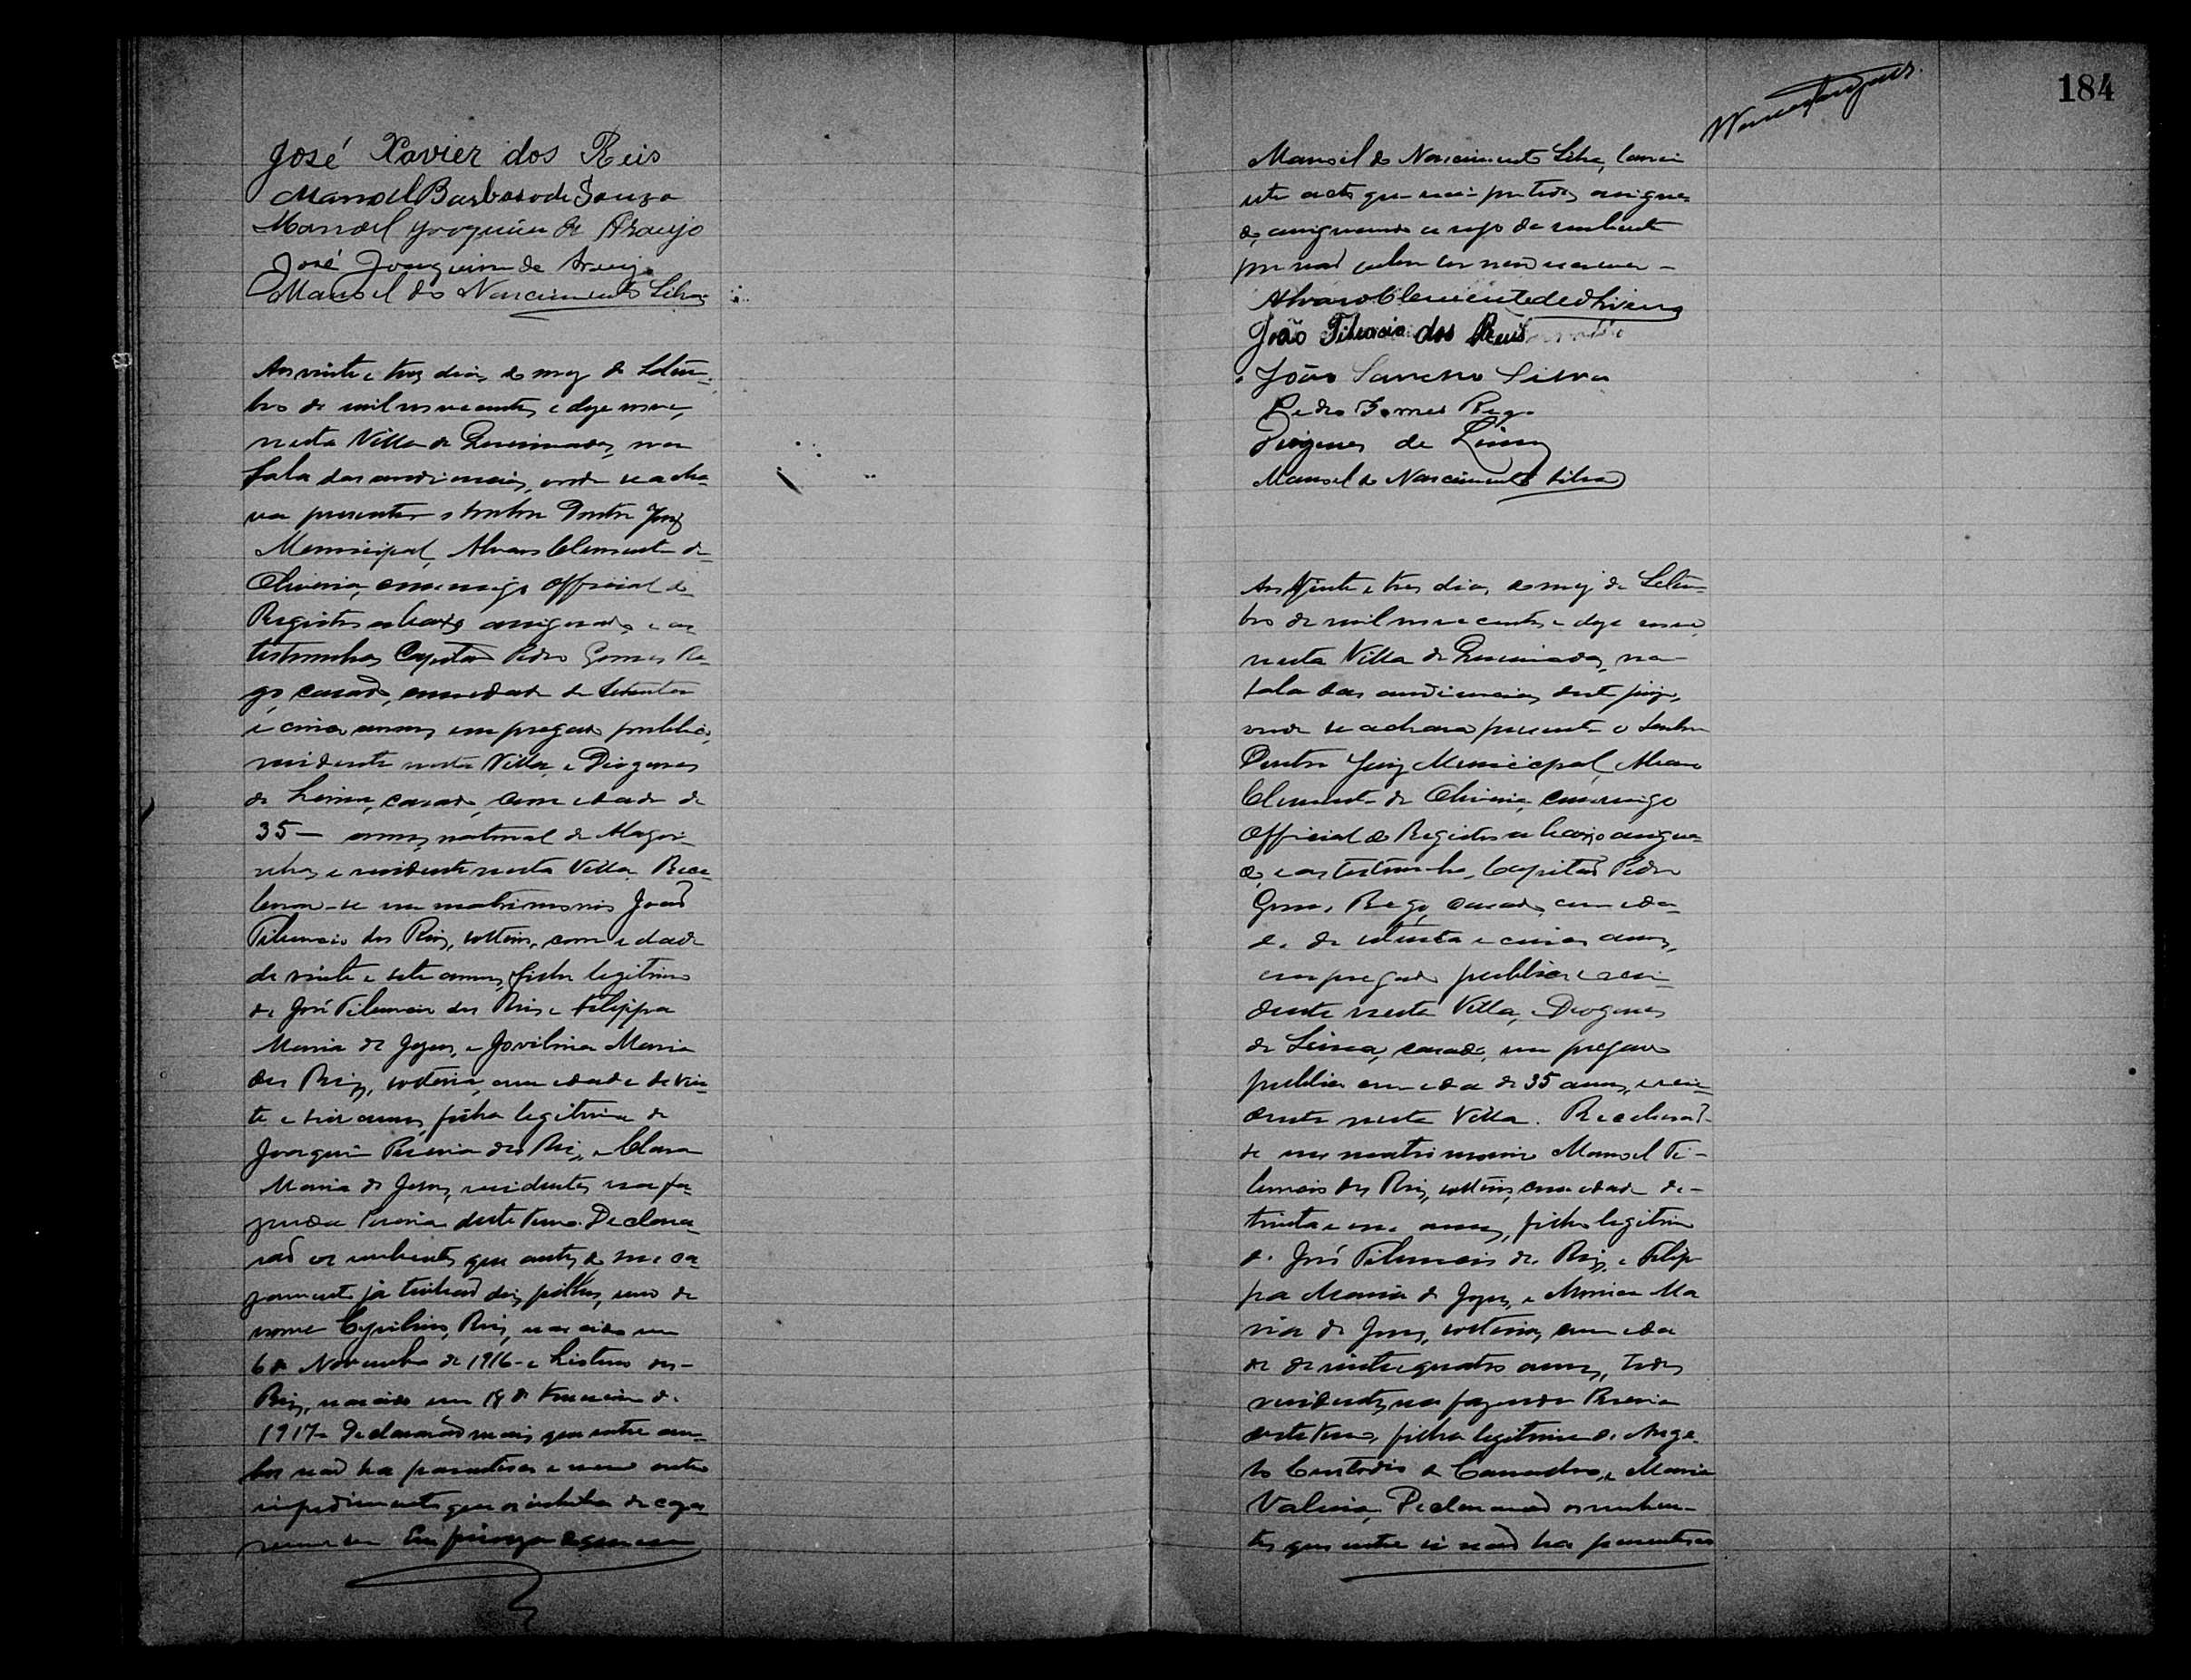 José Xavier dos Reis
Manoel Barbosa de Souza
Manoel Joaquim de Araujo
José Joaquim de Araujo
Manoel do Nascimento Silva
Aos vinte e tres dias do mez de Setem-
bro de mil novecentos e deze nove,
nesta Villa de Queimadas, na
Sala das audiencias, onde se acha-
va presente o Senhor Doutor Juiz
Municipal, Alvaro Clemente de
Oliveira, commigo official de
Registro abaixo assignado, e as
testemunhas Capitão Pedro Gomes Re-
go, casado, com edade de setenta
e cinco annos, empregado publico,
residente nesta Villa, e Diogenes
de Lima, casado, com edade de
35 – annos, natural de Alagoi-
nhas e residente nesta Villa. Rece-
beram-se em matrimonio João
Tiburcio dos Reis, solteiro, com edade
de vinte e sete annos, filho legitimo
de José Tiburcio dos Reis e Filippa
Maria de Jesus, e Jovelina Maria
dos Reis, solteira, com edade de vin-
te e seis annos, filha legitima de
Joaquim Pereira dos Reis, e Clara
Maria de Jesus, residentes na fa-
zenda deste termo. Declara-
rão os nubentes que antes de seu ca-
zamento já tinhão dois filhos, um de
nome Reis, nascido em
6 de Novembro de 1916 – e dos –
Reis, nascido em 18 de de
1917 – Declararão mais que entre am-
bos não ha parentesco e nem outro
impedimento que os inhiba de caza-
rem-se. Em
184
Manoel do Nascimento Silva, lavrei
este acto que vai por todos assigna-
do, assignando a rogo da nubente
por não saber ler nem escrever –
Alvaro Clemente de Oliveira
João Tiburcio dos Reis
João Silva
Pedro Gomes Rego
Diogenes de Lima
Manoel do Nascimento Silva
Aos Vinte e tres dias do mez de Setem-
bro de mil novecentos e deze nove,
nesta Villa de Queimadas, na
Sala das audiencias deste juizo,
onde se achava presente o Senhor
Doutor Juiz Municipal, Alvaro
Clemente de Oliveira, commigo
Official do Registro abaixo assigna-
do, e as testemunhas, Capitão Pedro
Gomes Rego, casado, com eda-
de de setenta e cinco annos,
empregado publico e resi-
dente nesta Villa, e Diogenes
de Lima, casado, empregado
publico com edade de 35 annos, e resi-
dente nesta Villa. Receberão-
se em matrimonio Manoel Ti-
burcio dos Reis, solteiro, com edade de –
trinta e annos, filho legitimo
de José Tiburcio dos Reis, e Filip-
pa Maria de Jesus, e Monica Ma-
ria de Jesus, solteira, com eda-
de de vinte e quatro annos, todos
residentes na fazenda
deste termo, filha legitima de Ange-
lo Custodio de e Maria
Valeria, Declararão os nuben-
tes que entre si não ha parentesco